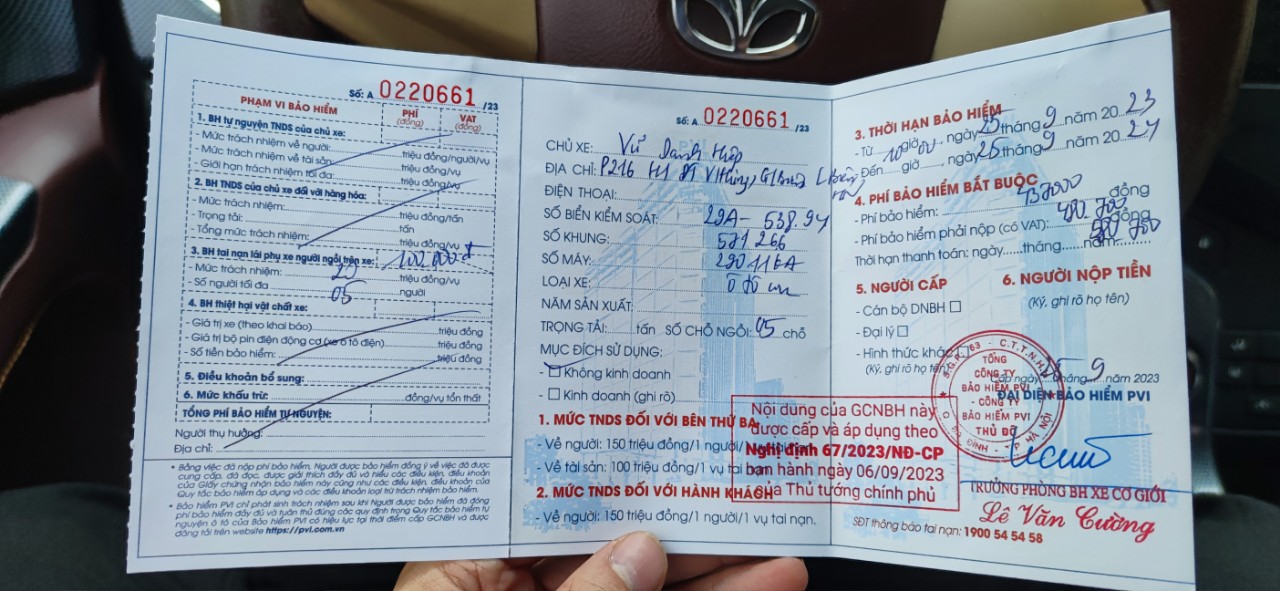 Số: A 0220661 /23
PHẠM VI BẢO HIỂM PHÍ (đồng) VAT (đồng)
1. BH tự nguyện TNDS của chủ xe:
- Mức trách nhiệm về người: triệu đồng/người/vụ
- Mức trách nhiệm về tài sản: triệu đồng/vụ
- Giới hạn trách nhiệm tối đa: triệu đồng/vụ
2. BH TNDS của chủ xe đối với hàng hóa:
- Mức trách nhiệm: triệu đồng/tấn
- Trọng tải: tấn
- Tổng mức trách nhiệm: triệu đồng/vụ
3. BH tai nạn lái phụ xe người ngồi trên xe: 100.000đ
- Mức trách nhiệm: triệu đồng/vụ
- Số người tối đa 05 người
4. BH thiệt hại vật chất xe:
- Giá trị xe (theo khai báo) triệu đồng
- Giá trị bộ pin điện động cơ (xe ô tô điện) triệu đồng
- Số tiền bảo hiểm: triệu đồng
5. Điều khoản bổ sung:
6. Mức khấu trừ: đồng/vụ tổn thất
TỔNG PHÍ BẢO HIỂM TỰ NGUYỆN:
Người thụ hưởng:
Địa chỉ:
* Bằng việc đã nộp phí bảo hiểm, Người được bảo hiểm đồng ý về việc đã được
cung cấp, đã đọc, được giải thích đầy đủ và hiểu các điều kiện, điều khoản
của Giấy chứng nhận bảo hiểm này cũng như các điều kiện, điều khoản của
Quy tắc bảo hiểm áp dụng và các điều khoản loại trừ trách nhiệm bảo hiểm.
* Bảo hiểm PVI chỉ phát sinh trách nhiệm sau khi Người được bảo hiểm đã đóng
phí bảo hiểm đầy đủ và tuân thủ đúng các quy định trong Quy tắc bảo hiểm tự
nguyện ô tô của Bảo hiểm PVI có hiệu lực tại thời điểm cấp GCNBH và được
đăng tải trên website https://pvi.com.vn
Số: A 0220661 /23
CHỦ XE: Vũ Danh Hiệp
ĐỊA CHỈ: P216 H1 ĐT V Hưng, G/Biên, L Biên
ĐIỆN THOẠI:
SỐ BIỂN KIỂM SOÁT: 29A - 538.94
SỐ KHUNG: 581266
SỐ MÁY: 29011KA
LOẠI XE: ô tô con
NĂM SẢN XUẤT:
TRỌNG TẢI: tấn SỐ CHỖ NGỒI: 05 chỗ
MỤC ĐÍCH SỬ DỤNG:
- Không kinh doanh
- Kinh doanh (ghi rõ)
1. MỨC TNDS ĐỐI VỚI BÊN THỨ BA
- Về người: 150 triệu đồng/1 người/
- Về tài sản: 100 triệu đồng/1 vụ tai
2. MỨC TNDS ĐỐI VỚI HÀNH KHÁCH
- Về người: 150 triệu đồng/1 người/1 vụ tai nạn.
Nội dung của GCNBH này
được cấp và áp dụng theo
Nghị định 67/2023/NĐ-CP
ban hành ngày 06/09/2023
của Thủ tướng chính phủ
3. THỜI HẠN BẢO HIỂM
- Từ 10 giờ 00, ngày 25 tháng 9 năm 2023
- Đến giờ, ngày 25 tháng 9 năm 2024
4. PHÍ BẢO HIỂM BẮT BUỘC
- Phí bảo hiểm: 437000 đồng
- Phí bảo hiểm phải nộp (có VAT): 480.700 đồng
Thời hạn thanh toán: ngày tháng năm
5. NGƯỜI CẤP
- Cán bộ DNBH
- Đại lý
- Hình thức khác
(Ký, ghi rõ họ tên)
6. NGƯỜI NỘP TIỀN
(Ký, ghi rõ họ tên)
Cấp ngày 25 tháng 9 năm 2023
ĐẠI DIỆN BẢO HIỂM PVI
TỔNG
CÔNG TY
BẢO HIỂM PVI
- CÔNG TY
BẢO HIỂM PVI
THỦ ĐÔ
TRƯỞNG PHÒNG BH XE CƠ GIỚI
Lê Văn Cường
SĐT thông báo tai nạn: 1900 54 54 58